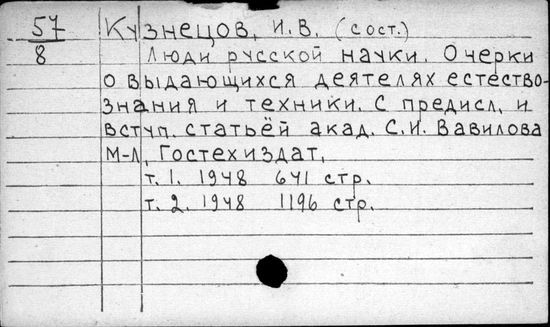 57
8
Кузнецов, И.В. (сост.)
Люди русской науки. Очерки
о выдающихся деятелях естество-
знания и техники. С предисл. и
вступ. статьёй акад. С.И. Вавилова
М-Л, Гостехиздат,
т. 1. 1948 641 стр.
т. 2. 1948 1196 стр.